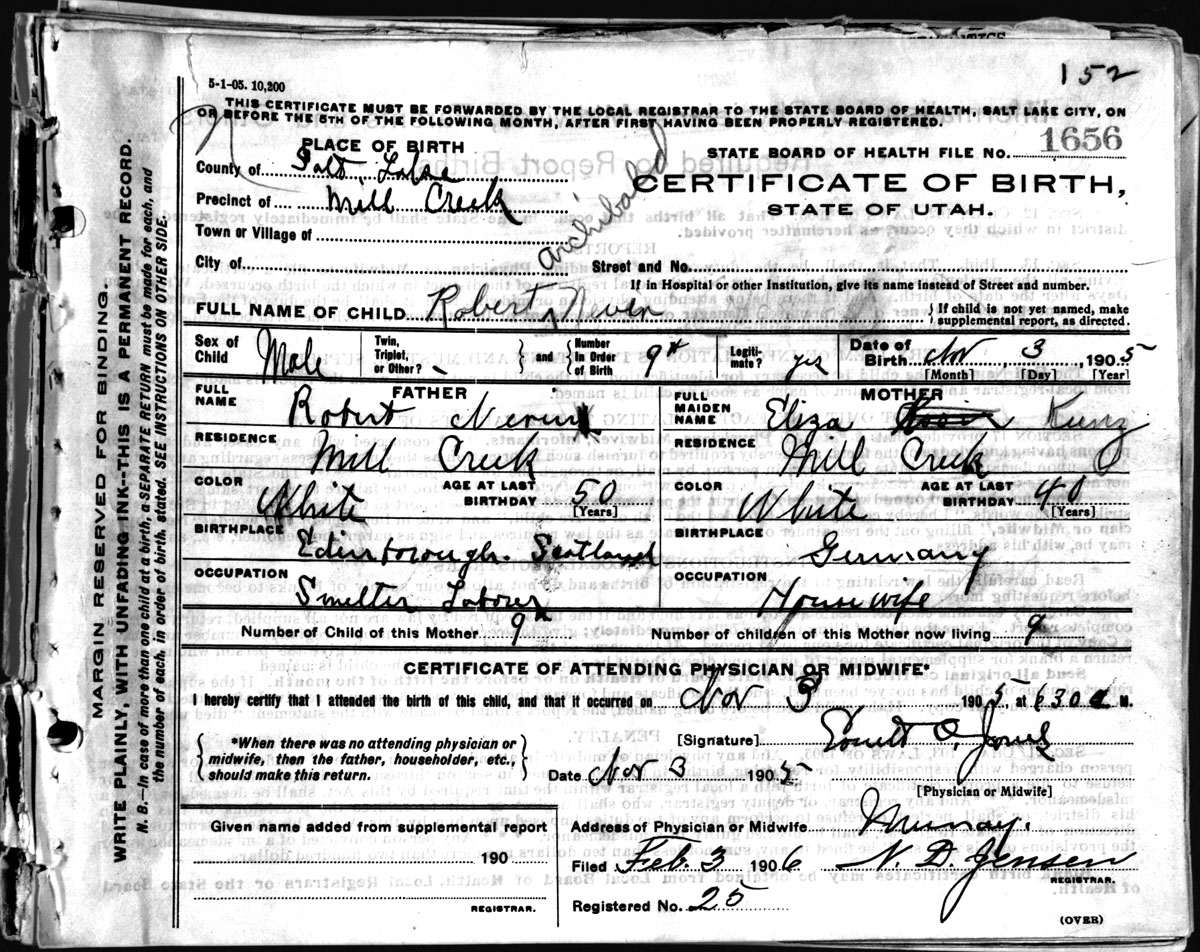 152
5-1-05. 10,200
THIS CERTIFICATE MUST BE FORWARDED BY THE LOCAL REGISTRAR TO THE STATE BOARD OF HEALTH, SALT LAKE CITY, ON
OR BEFORE THE 5TH OF THE FOLLOWING MONTH, AFTER FIRST HAVING BEEN PROPERLY REGISTERED.
PLACE OF BIRTH
STATE BOARD OF HEALTH FILE No. 1656
County of Salt Lake
CERTIFICATE OF BIRTH,
Precinct of Mill Creek
STATE OF UTAH.
Town or Village of
City of
Street and No.
If in Hospital or other Institution, give its name instead of Street and number.
Archibald
FULL NAME OF CHILD Robert Niven
If child is not yet named, make
supplemental report, as directed.
Sex of Child Male
Twin, Triplet, or Other? -
and
Number in Order of Birth 9th
Legiti-mate? yes
Date of Birth Nov 3, 1905
[Month] [Day] [Year]
FATHER
FULL NAME Robert
MOTHER
FULL MAIDEN NAME Eliza Kunz
RESIDENCE Mill Creek
RESIDENCE Mill Creek
COLOR White
AGE AT LAST BIRTHDAY 50 [Years]
COLOR White
AGE AT LAST BIRTHDAY 40 [Years]
BIRTHPLACE Edinborough. Scotland
BIRTHPLACE Germany
OCCUPATION Smelter
OCCUPATION Housewife
Number of Child of this Mother 9
Number of children of this Mother now living 9
CERTIFICATE OF ATTENDING PHYSICIAN OR MIDWIFE*
I hereby certify that I attended the birth of this child, and that it occurred on Nov 3 1905, at 630 a M.
*When there was no attending physician or
midwife, then the father, householder, etc.,
should make this return.
[Signature] O. Jones
Date Nov 3 1905
[Physician or Midwife]
Given name added from supplemental report
190
REGISTRAR.
Address of Physician or Midwife Murray.
Filed Feb. 3 1906 N. D. Jensen
REGISTRAR.
Registered No. 25
(OVER)
MARGIN RESERVED FOR BINDING.
WRITE PLAINLY, WITH UNFADING INK--THIS IS A PERMANENT RECORD.
N. B.--In case of more than one child at a birth, a SEPARATE RETURN must be made for each, and
the number of each, in order of birth, stated. SEE INSTRUCTIONS ON OTHER SIDE.